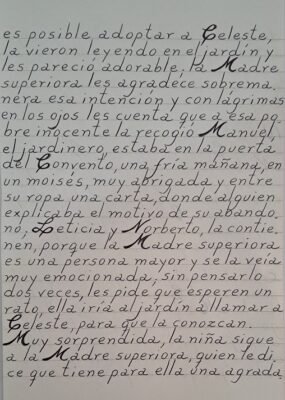 es posible, adoptar a Celeste,
la vieron leyendo en el jardín y
les pareció adorable, la Madre
superiora les agradece sobrema
nera esa intención y con lágrimas
en los ojos les cuenta que a esa po
bre inocente la recogió Manuel,
el jardinero, estaba en la puerta
del Convento, una fría mañana, en
un moisés, muy abrigada y entre
su ropa, una carta, donde alguien
explicaba el motivo de su abando
no, Leticia y Norberto, la contie
nen, porque la Madre superiora
es una persona mayor y se la veía
muy emocionada, sin pensarlo
dos veces, les pide que esperen un
rato, ella iría al jardín a llamar a
Celeste, para que la conozcan.
Muy sorprendida, la niña sigue
a la Madre superiora, quien le di
ce que tiene para ella una agrada